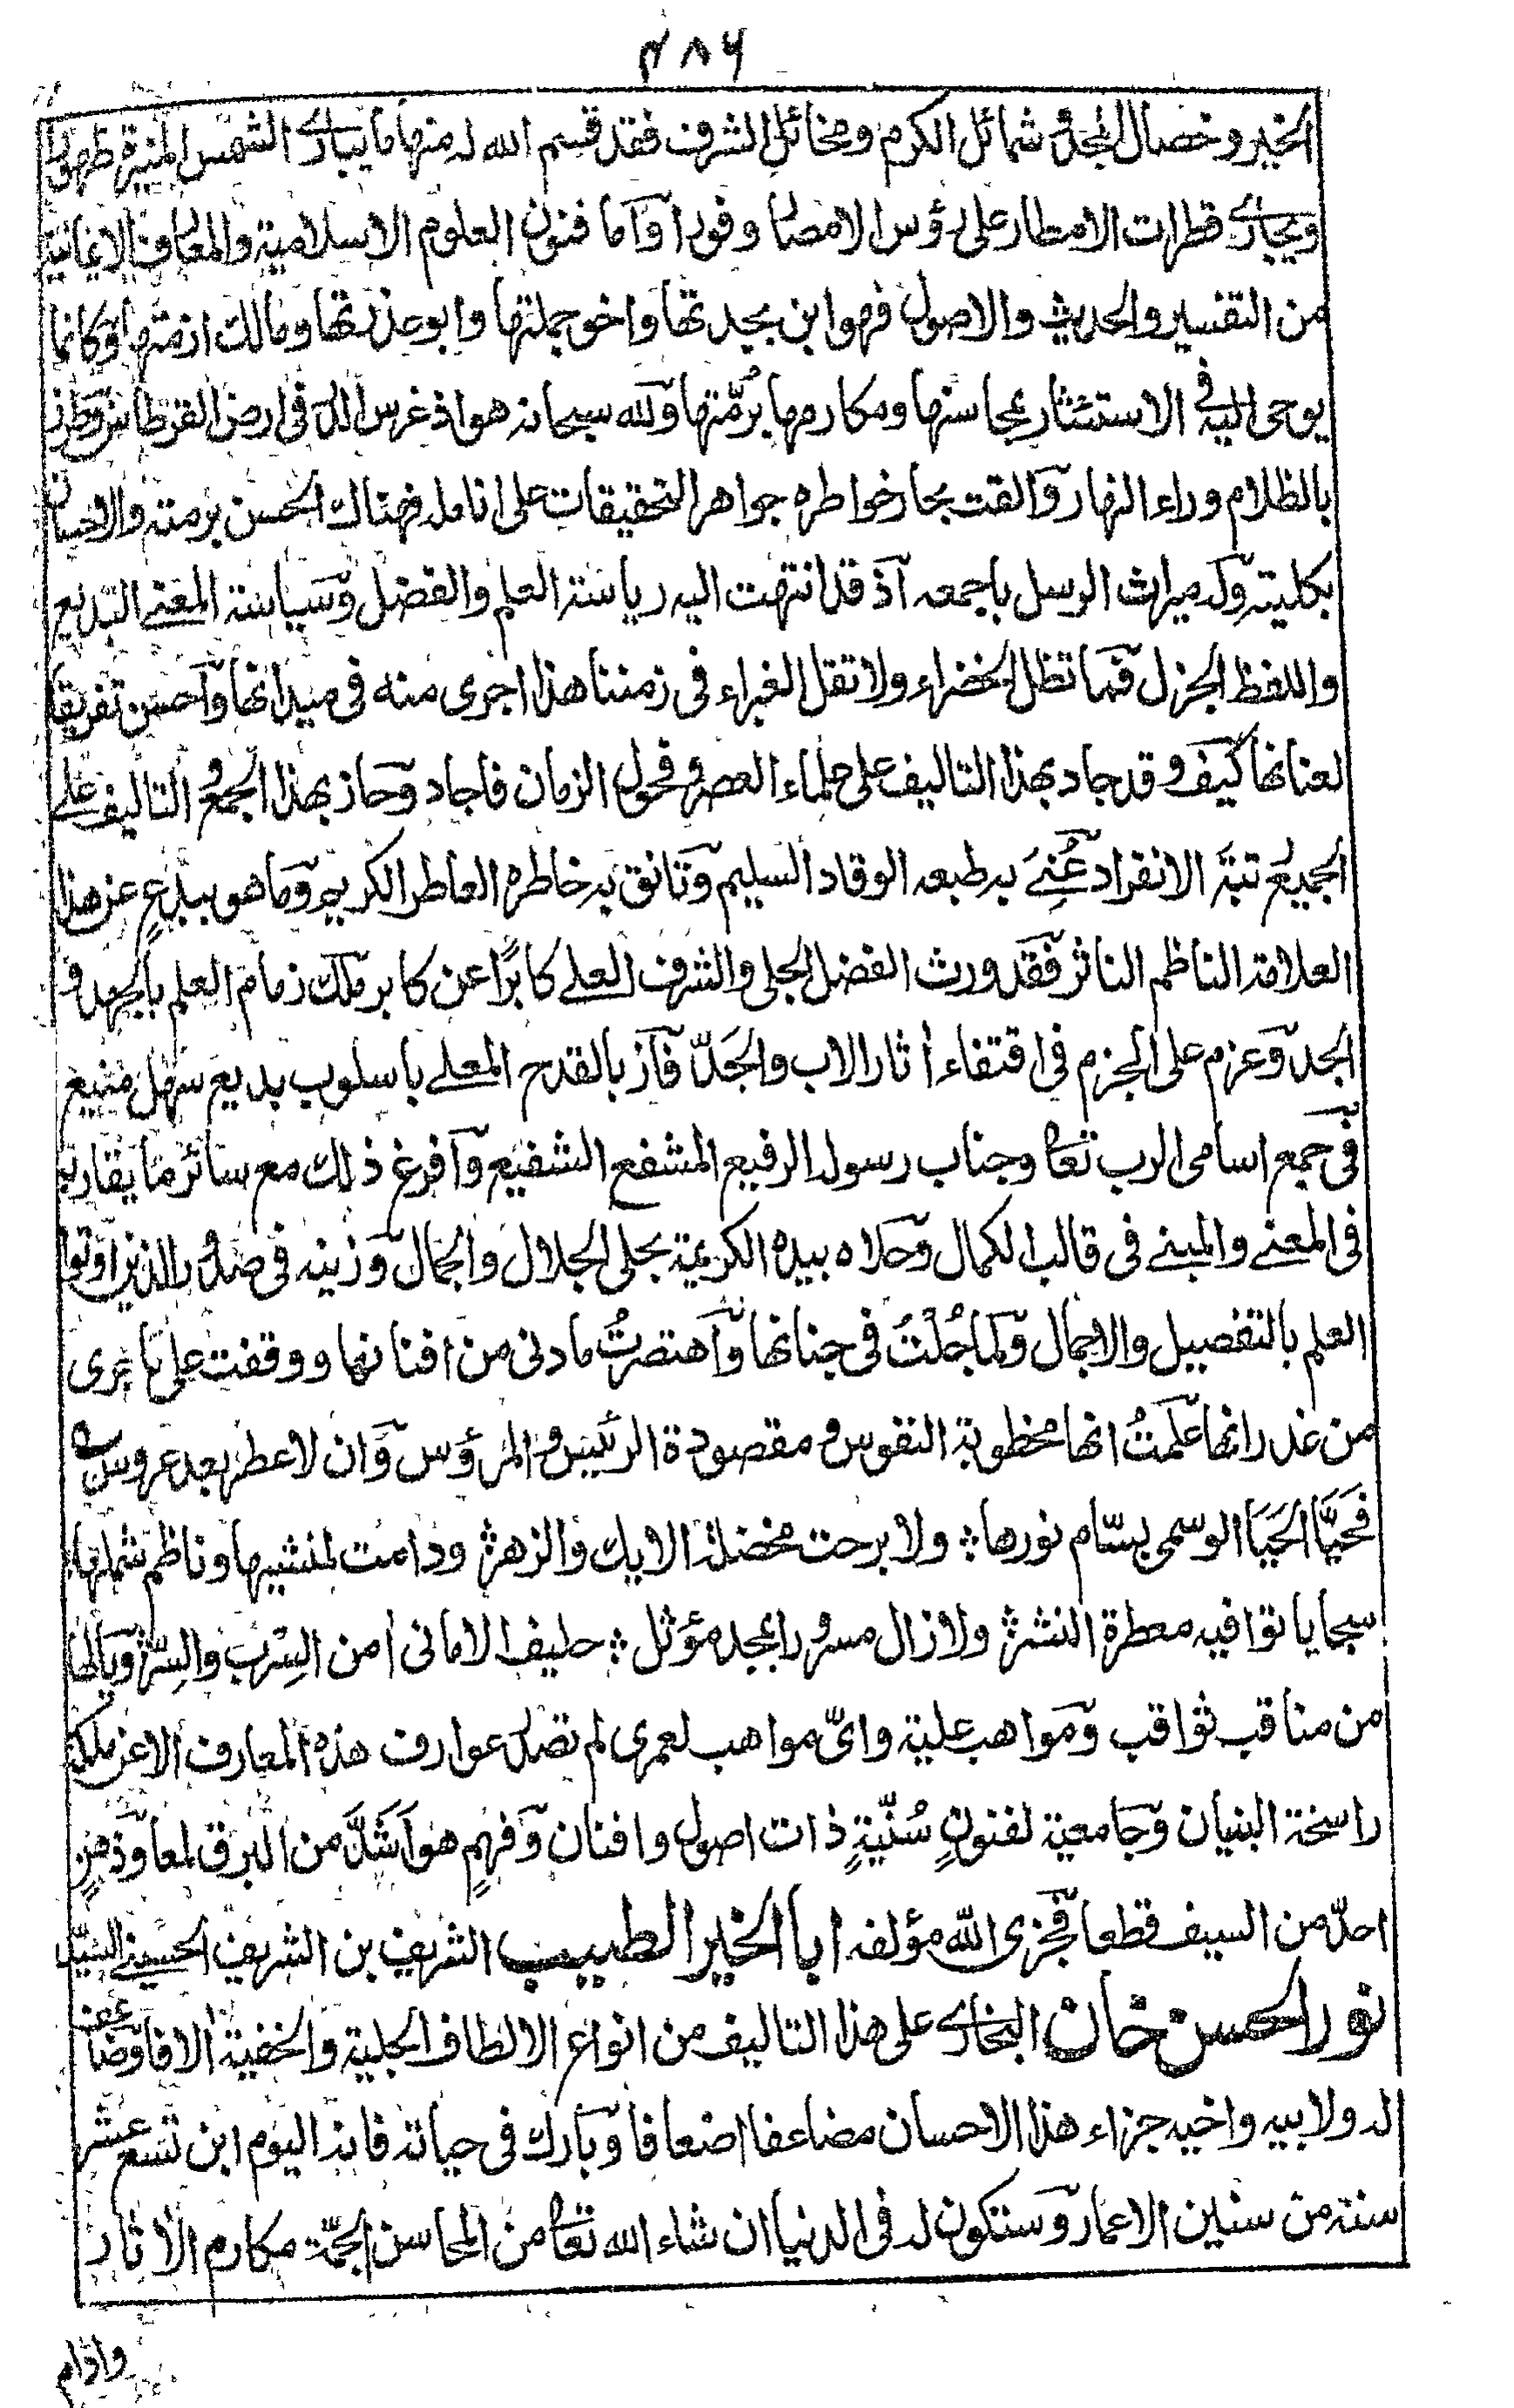 ۴۸۶
الخير وخصال المجد و شمائل الكرم ومخائل الشرف فقد قسم الله له منها ما يبارى الشمس المنيرة ظهورا
ويجارى قطرات الامطار على رؤس الامصار وفورا واما فنون العلوم الاسلامية والمعارف الايمانية
من التفسير والحديث والاصول فهو ابن بجدتها واخو جملتها وابو عذرتها ومالك ازمتها وكانما
يوحى اليه فى الاستئثار بمحاسنها ومكارمها برُمّتها ولله سبحانه هو اذ غرس الدر فى ارض القرطاس وطرز
بالظلام وراء النهار والقت بحار خواطره جواهر التحقيقات على انامله فهناك الحسن برمته والاحسان
بكليته وله ميراث الرسل باجمعه اذ قد انتهت اليه رياسة العلم والفضل وسياسة المعنے البديع
واللفظ الجزل فما تظل الخضراء ولا تقل الغبراء فى زمننا هذا اجرى منه فى ميدانها واحسن تفريقا
لعنانها كيف وقد جاد بهذا التاليف على علماء العصر و فحول الزمان فاجاد وحاز بهذا الجمع و التاليف على
الجميع رتبة الانفراد عُنِىَ به طبعه الوقاد السليم وتانق به خاطره العاطر الكريم وما هو ببدعٍ عن هذا
العلامة الناظم الناثر فقد ورث الفضل الجلى والشرف العلے كابرًا عن كابر ملك زمام العلم بالجهد و
الجد وعزم على الجزم فى اقتفاء اثار الاب والجَدّ فاز بالقدح المعلے باسلوب بديع سهل منيع
فى جمع اسامى الرب تعالى وجناب رسوله الرفيع المشفع الشفيع وافرغ ذلك مع سائر ما يقاربه
فى المعنے والمبنے فى قالب الكمال وحلاه بيده الكريمة بحلى الجلال والجمال وزينه فى صدور الذين اوتوا
العلم بالتفصيل والاجمال ولما جُلتُ فى جنانها واهتصرتُ ما دنى من افنانها ووقفت على ما جرى
من غدرانها علمتُ انها مخطوبة النفوس و مقصودة الرئيس والمرؤس وان لا عطر بعد عروس
فحَيَّا الحَيَا الوسمى بسّام نورها ؛ ولا برحت مخضلة الايك والزهر ؛ ودامت لمنشيها وناظم شملها
سجايا توافيه معطرة النشر ؛ ولا زال مسرورا بمجد مؤثل ؛ حليف الامانى امن السِرب والسِرّ ؛ ويالها
من مناقب ثواقب ومواهب علية واىّ مواهب لعمرى لم تصدر عوارف هذه المعارف الا عن ملكة
راسخة البنيان وجامعية لفنونٍ سُنّيةٍ ذات اصول وافنان وفهمٍ هو اَشَدَّ من البرق لمعا وذهنٍ
احدّ من السيف قطعا فجزى الله مؤلفه ابا الخير الطيب الشريف بن الشريف الحسينے السيد
نور الحسن خان البخارى على هذا التاليف من انواع الالطاف الجلية والخفية الافا وضاعف
له ولابيه واخيه جزاء هذا الاحسان مضاعفا اضعافا وبارك فى حياته فانه اليوم ابن تسع عشرة
سنة من سنين الاعمار وستكون له فى الدنيا ان شاء الله تعالى من المحاسن الجمّة مكارم الاثار
وادام